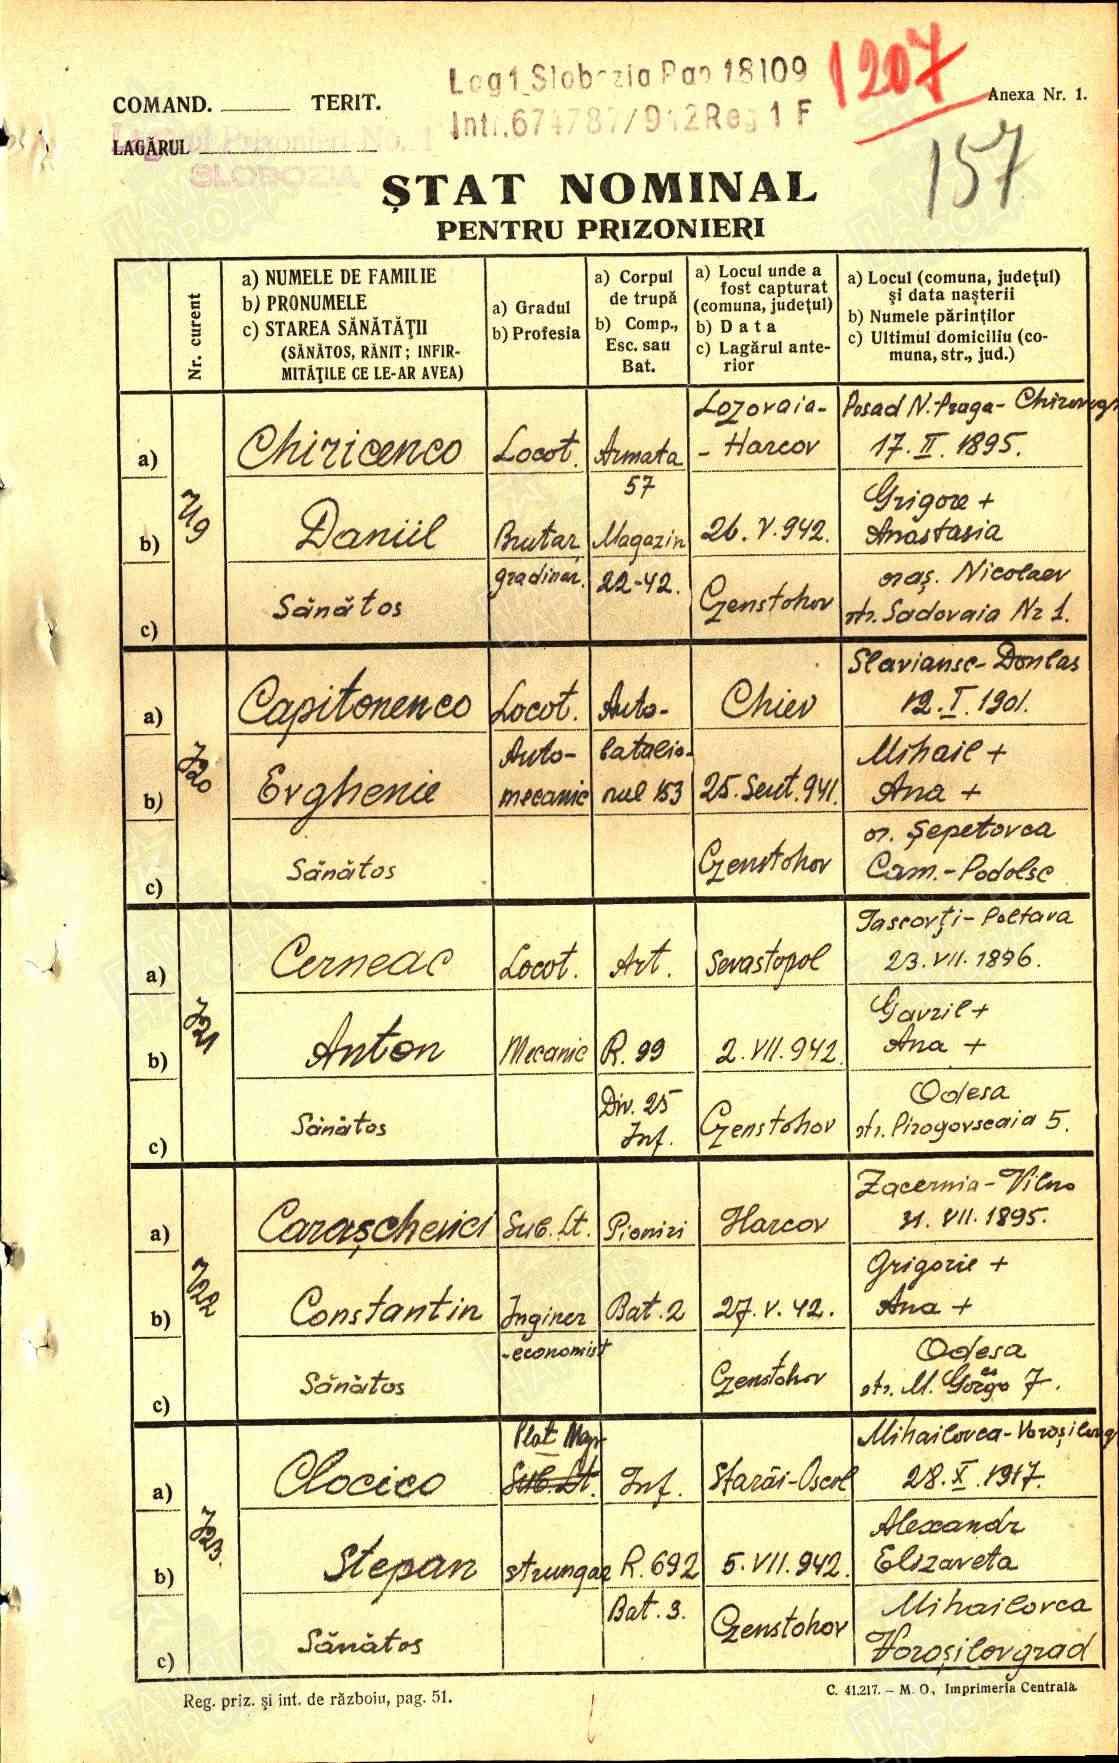 COMAND. ______ TERIT.
Lag 1 Slobozia Pap 18109
1207
Anexa Nr. 1.
Intr. 674787/942 Reg 1 F
LAGĂRUL
Lagărul Prizonieri No. 1
SLOBOZIA
157
ȘTAT NOMINAL
PENTRU PRIZONIERI
Nr. curent
a) NUMELE DE FAMILIE
b) PRONUMELE
c) STAREA SĂNĂTĂȚII
(SĂNĂTOS, RĂNIT; INFIR-
MITĂȚILE CE LE-AR AVEA)
a) Gradul
b) Profesia
a) Corpul
de trupă
b) Comp.,
Esc. sau
Bat.
a) Locul unde a
fost capturat
(comuna, județul)
b) Data
c) Lagărul ante-
rior
a) Locul (comuna, județul)
și data nașterii
b) Numele părinților
c) Ultimul domiciliu (co-
muna, str., jud.)
719
a) Chiricenco
Locot.
Armata
57
Lozovaia-
- Harcov
Posad N.-Praga- Chirovogr
17. II. 1895.
b) Daniil
Brutar,
gradinar.
Magazin
22-42.
26. V. 942.
Grigore +
Anastasia
c) Sănătos
Czenstohov
oraș. Nicolaev
str. Sadovaia Nr 1.
720
a) Capitonenco
Locot.
Auto-
Chiev
Slaviansc- Donbas
12. I. 1901.
b) Evghenie
Auto-
mecanic
batalio-
nul 153
25. Sept. 941.
Mihail +
Ana +
c) Sănătos
Czenstohov
or. Șepetovca
Cam.-Podolsc
721
a) Cerneac
Locot.
Art.
Sevastopol
Tascovți- Poltava
23. VII. 1896.
b) Anton
Mecanic
R. 99
2. VII. 942.
Gavril +
Ana +
c) Sănătos
Div. 25
Inf.
Czenstohov
Odesa
str. Pirogovscaia 5.
722
a) Carașchevici
Sub. Lt.
Pioniri
Harcov
Zacernia- Vilno
31. VII. 1895.
b) Constantin
Inginer
-economist
Bat. 2
27. V. 42.
Grigorie +
Ana +
c) Sănătos
Czenstohov
Odesa
str. M. Gorgo 7.
723.
a) Clocico
Plot. Maj.
Sub. Lt.
Inf.
Starâi-Oscol
Mihailovca- Voroșilovg
28. X. 1917.
b) Stepan
strungar
R. 692
Bat. 3.
5. VII. 942.
Alexandr
Elizaveta
c) Sănătos
Czenstohov
Mihailovca
Voroșilovgrad
Reg. priz. și int. de războiu, pag. 51.
C. 41.217. – M. O., Imprimeria Centrală.